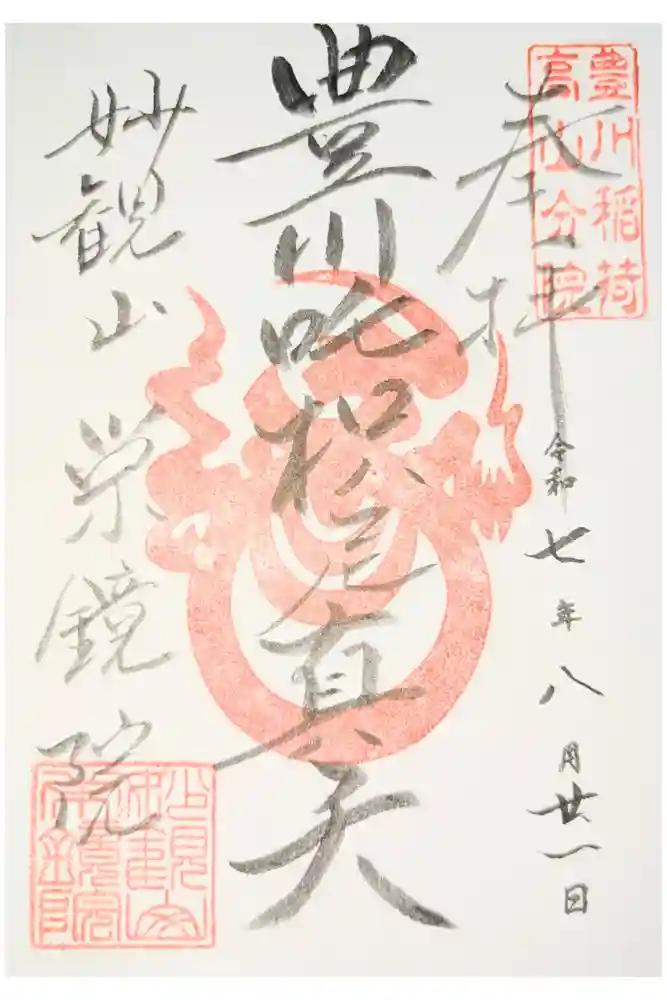 豊川稲荷
高山分院
奉拝
令和七年八月廿一日
豊川吒枳尼真天
妙観山 栄鏡院